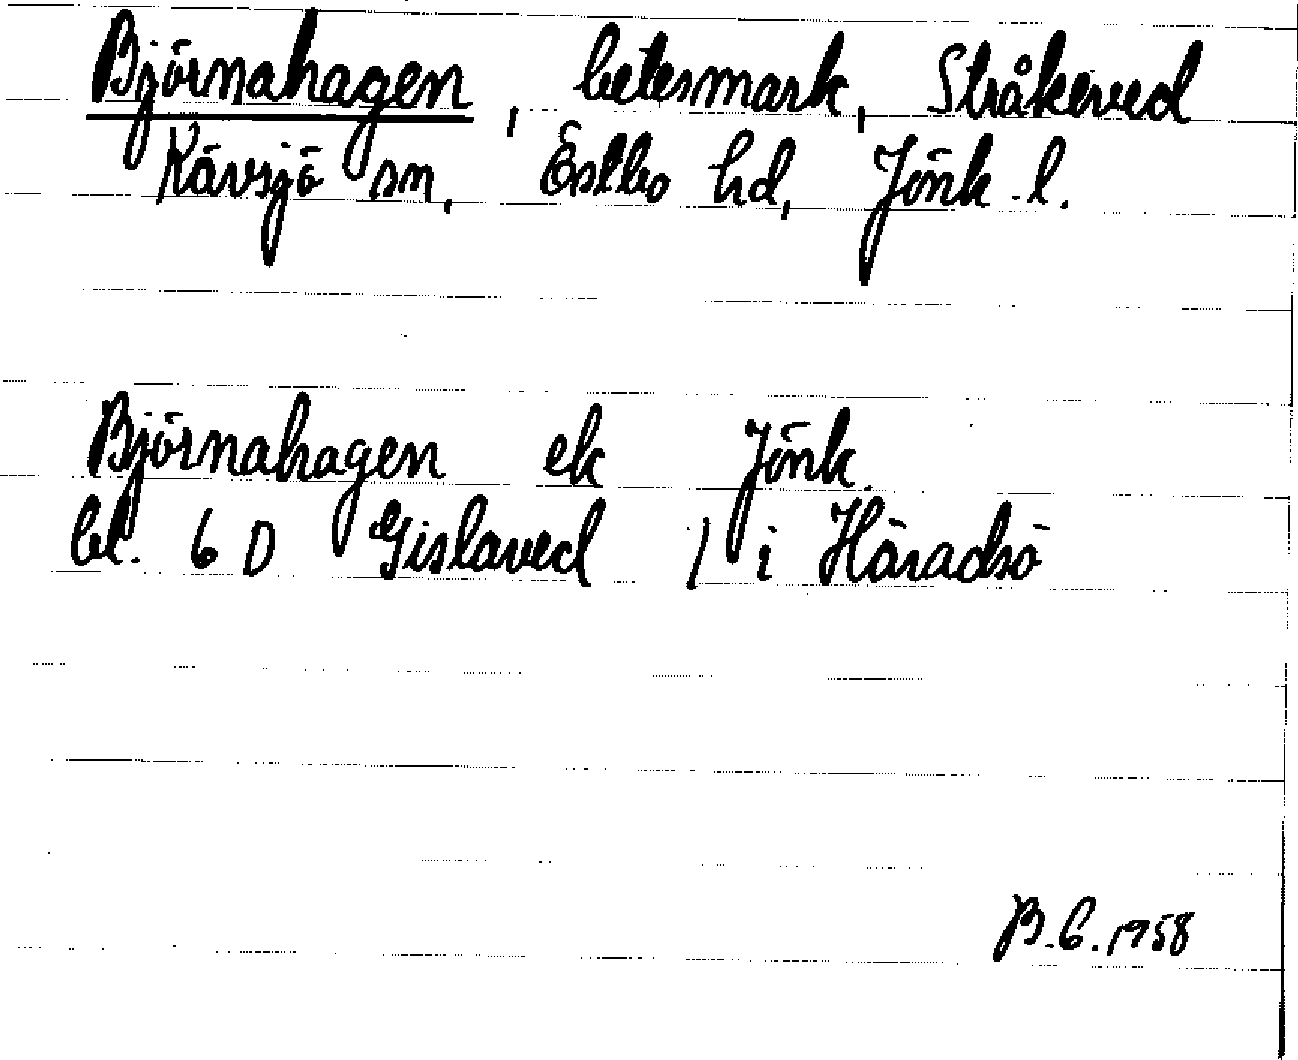 Björnahagen, betesmark, Stråkeved
Kävsjö sn, Östbo hd, Jönk. l.
Björnahagen ek Jönk.
bl. 6 D Gislaved / i Häradsö
B.G. 1958